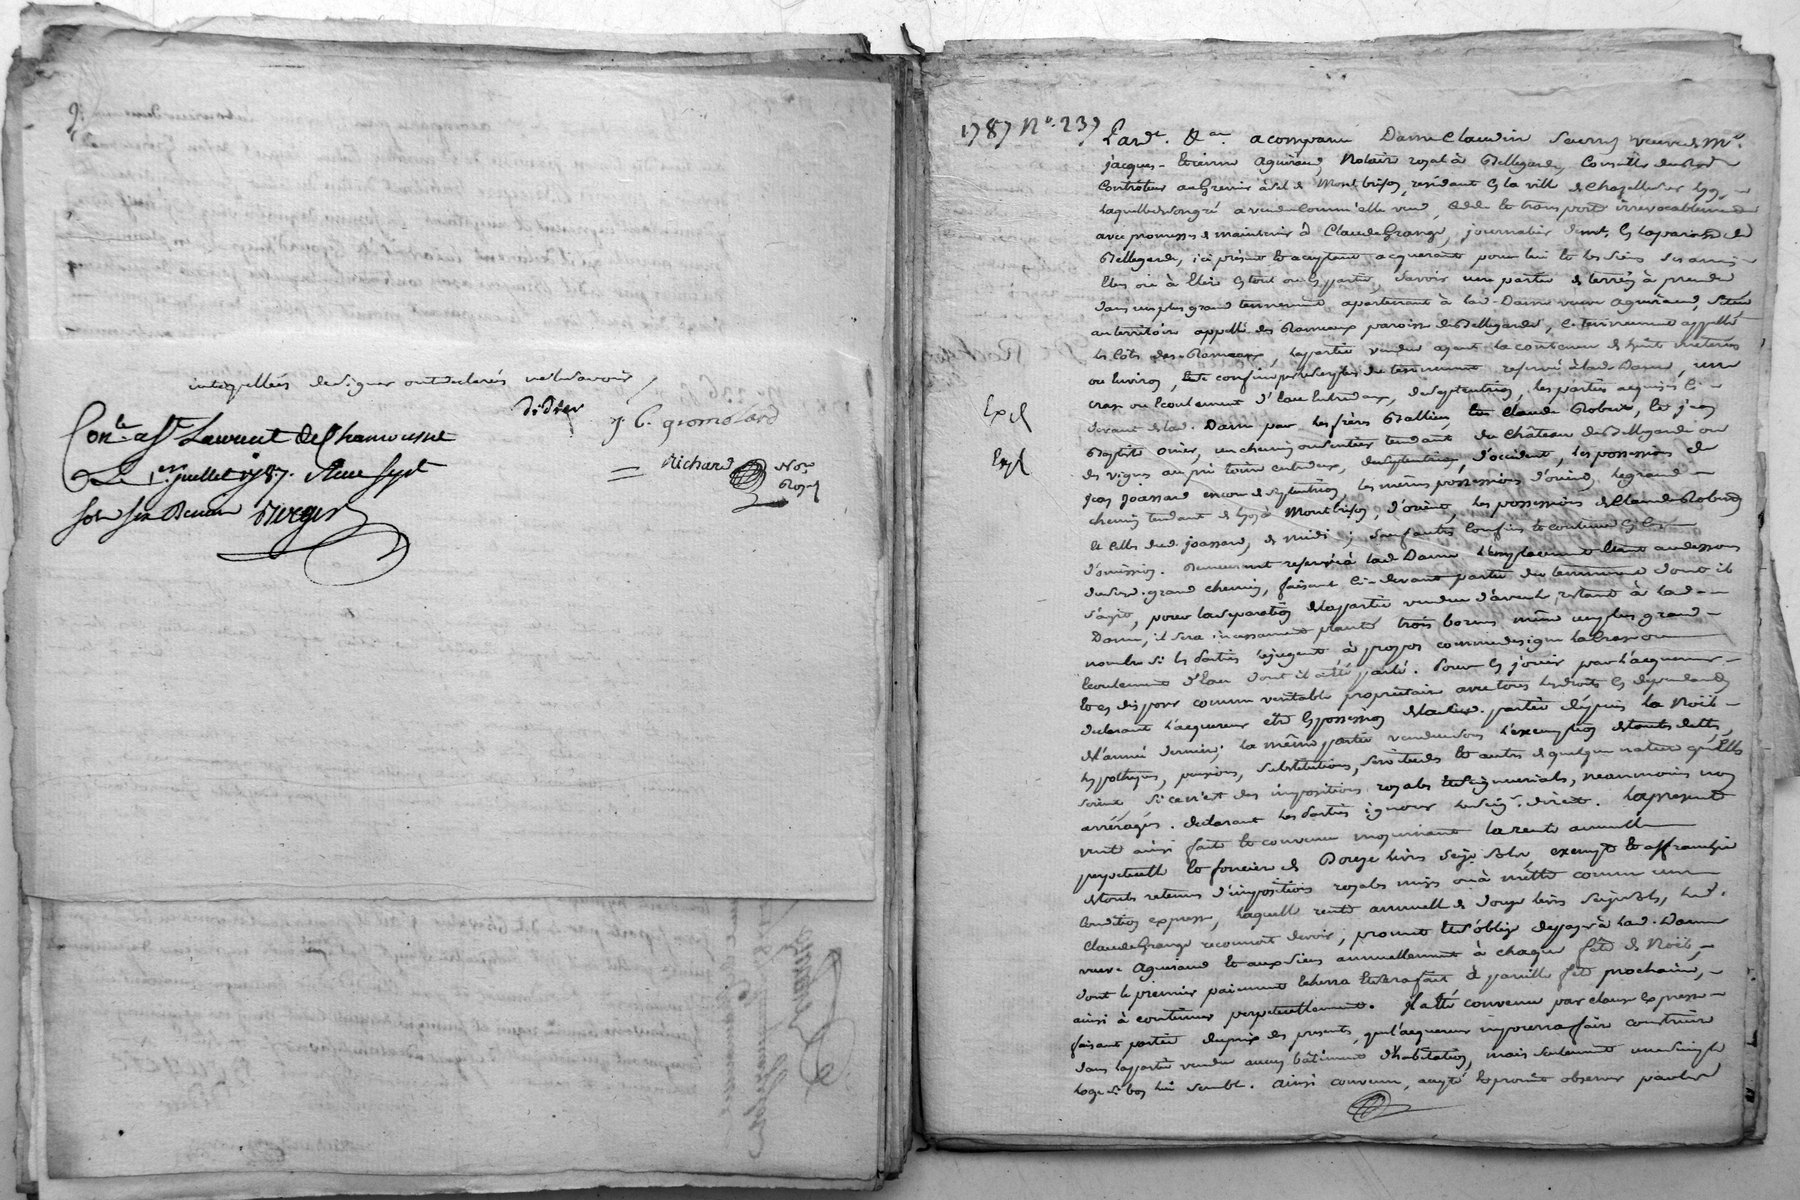 interpellées de signer ont declarés ne le savoir /
didier
J. C. gromolard
Richard Nore
Royal
Conlé à St Laurent de Chamousset
Le 1er juillet 1787. Reçu sept
sols six Deniers Berger
1787 N°. 237 Pard. &a. a comparu Dame Claudine veuve de Me.
jacques-Etienne Aguiraud, Notaire royal à Bellegarde, Conseiller du Roi
Controleur au Grenier à sel de Montbrison, résidant en la ville de Chazelles sur Lyon,
laquelle de son gré a vendu comm'elle vend, cede et transporte irrevocablement
avec promesses de maintenir à Claude Grange, journalier demt. en la paroisse de
Bellegarde, ici présent et acceptant acquerant pour lui et les siens
élus ou à élire en tout ou en partie, savoir une partie de terres à prendre
dans un plus grand tennement apartenant à lad. Dame veuve Aguiraud, située
au territoire appellé des Rameaux paroisse de Bellegarde, le tennement appellé
les Côtes des Rameaux, la partie vendue ayant la contenue de huit
ou environ, confinée par le surplus du tennement reservé à lad. Dame, une
Expé
crase ou écoulement d'eau entredeux, de septentrion, les parties acquises ci-
devant de lad. Dame par les frères et Claude Robert, le jean
Baptiste un chemin ou sentier tendant du château de Bellegarde
Expé
des vignes entredeux, de septentrion, d'occident, les possessions de
jean joassard encore de septentrion, les mêmes possessions d'orient, le grand
chemin tendant de Lyon à Montbrison, d'orient, les possessions de Claude Robert
et celles dud. joassard, de midi; sauf autres confins et contenue en cas
d'omission. Demeurant reservé à lad. Dame l'emplacement étant audessous
dud. grand chemin, faisant ci-devant partie du tennement dont il
s'agit, pour la separation de la partie vendue d'avec le restant à lad.
Dame, il sera incessament planté trois bornes même un plus grand
nombre si les Parties le jugent à propos la crase ou
écoulement d'eau dont il a été parlé. Pour en jouir par l'acquereur
et en disposer comme veritable proprietaire avec tous les droits en dependants
declarant l'acquereur être en possession de lad. partie depuis la Noël
de l'année derniere; la même partie vendue sous l'exemption de toutes dettes
hypotheques, pensions, substitutions, servitudes et autres de quelque nature qu'elles
soient si ce n'est des impositions royales et seigneuriales, neanmoins non
arréragés. declarant les Parties ignorer le seigr. direct. La presente
vente ainsi faite et convenue moyennant la rente annuelle
perpetuelle et fonciere de Douze livres seize sols, exempte et affranchie
de toutes retenues d'impositions royales mises ou à mettre comme une
condition expresse, laquelle rente annuelle de douze livres seize sols, led.
Claude Grange reconnoit devoir, promet et s'oblige de payer à lad. Dame
veuve Aguiraud et aux siens annuellement à chaque fête de Noël,
dont le premier paiement echerra et sera fait à pareille fête prochaine,
ainsi à continuer perpetuellement. Il a été convenu par clause expresse
faisant partie du prix des presentes, que l'acquereur ne pourra faire construire
dans la partie vendue aucun bâtiment d'habitation, mais seulement une simple
loge si bon lui semble. Ainsi convenu, accepté et promis observer